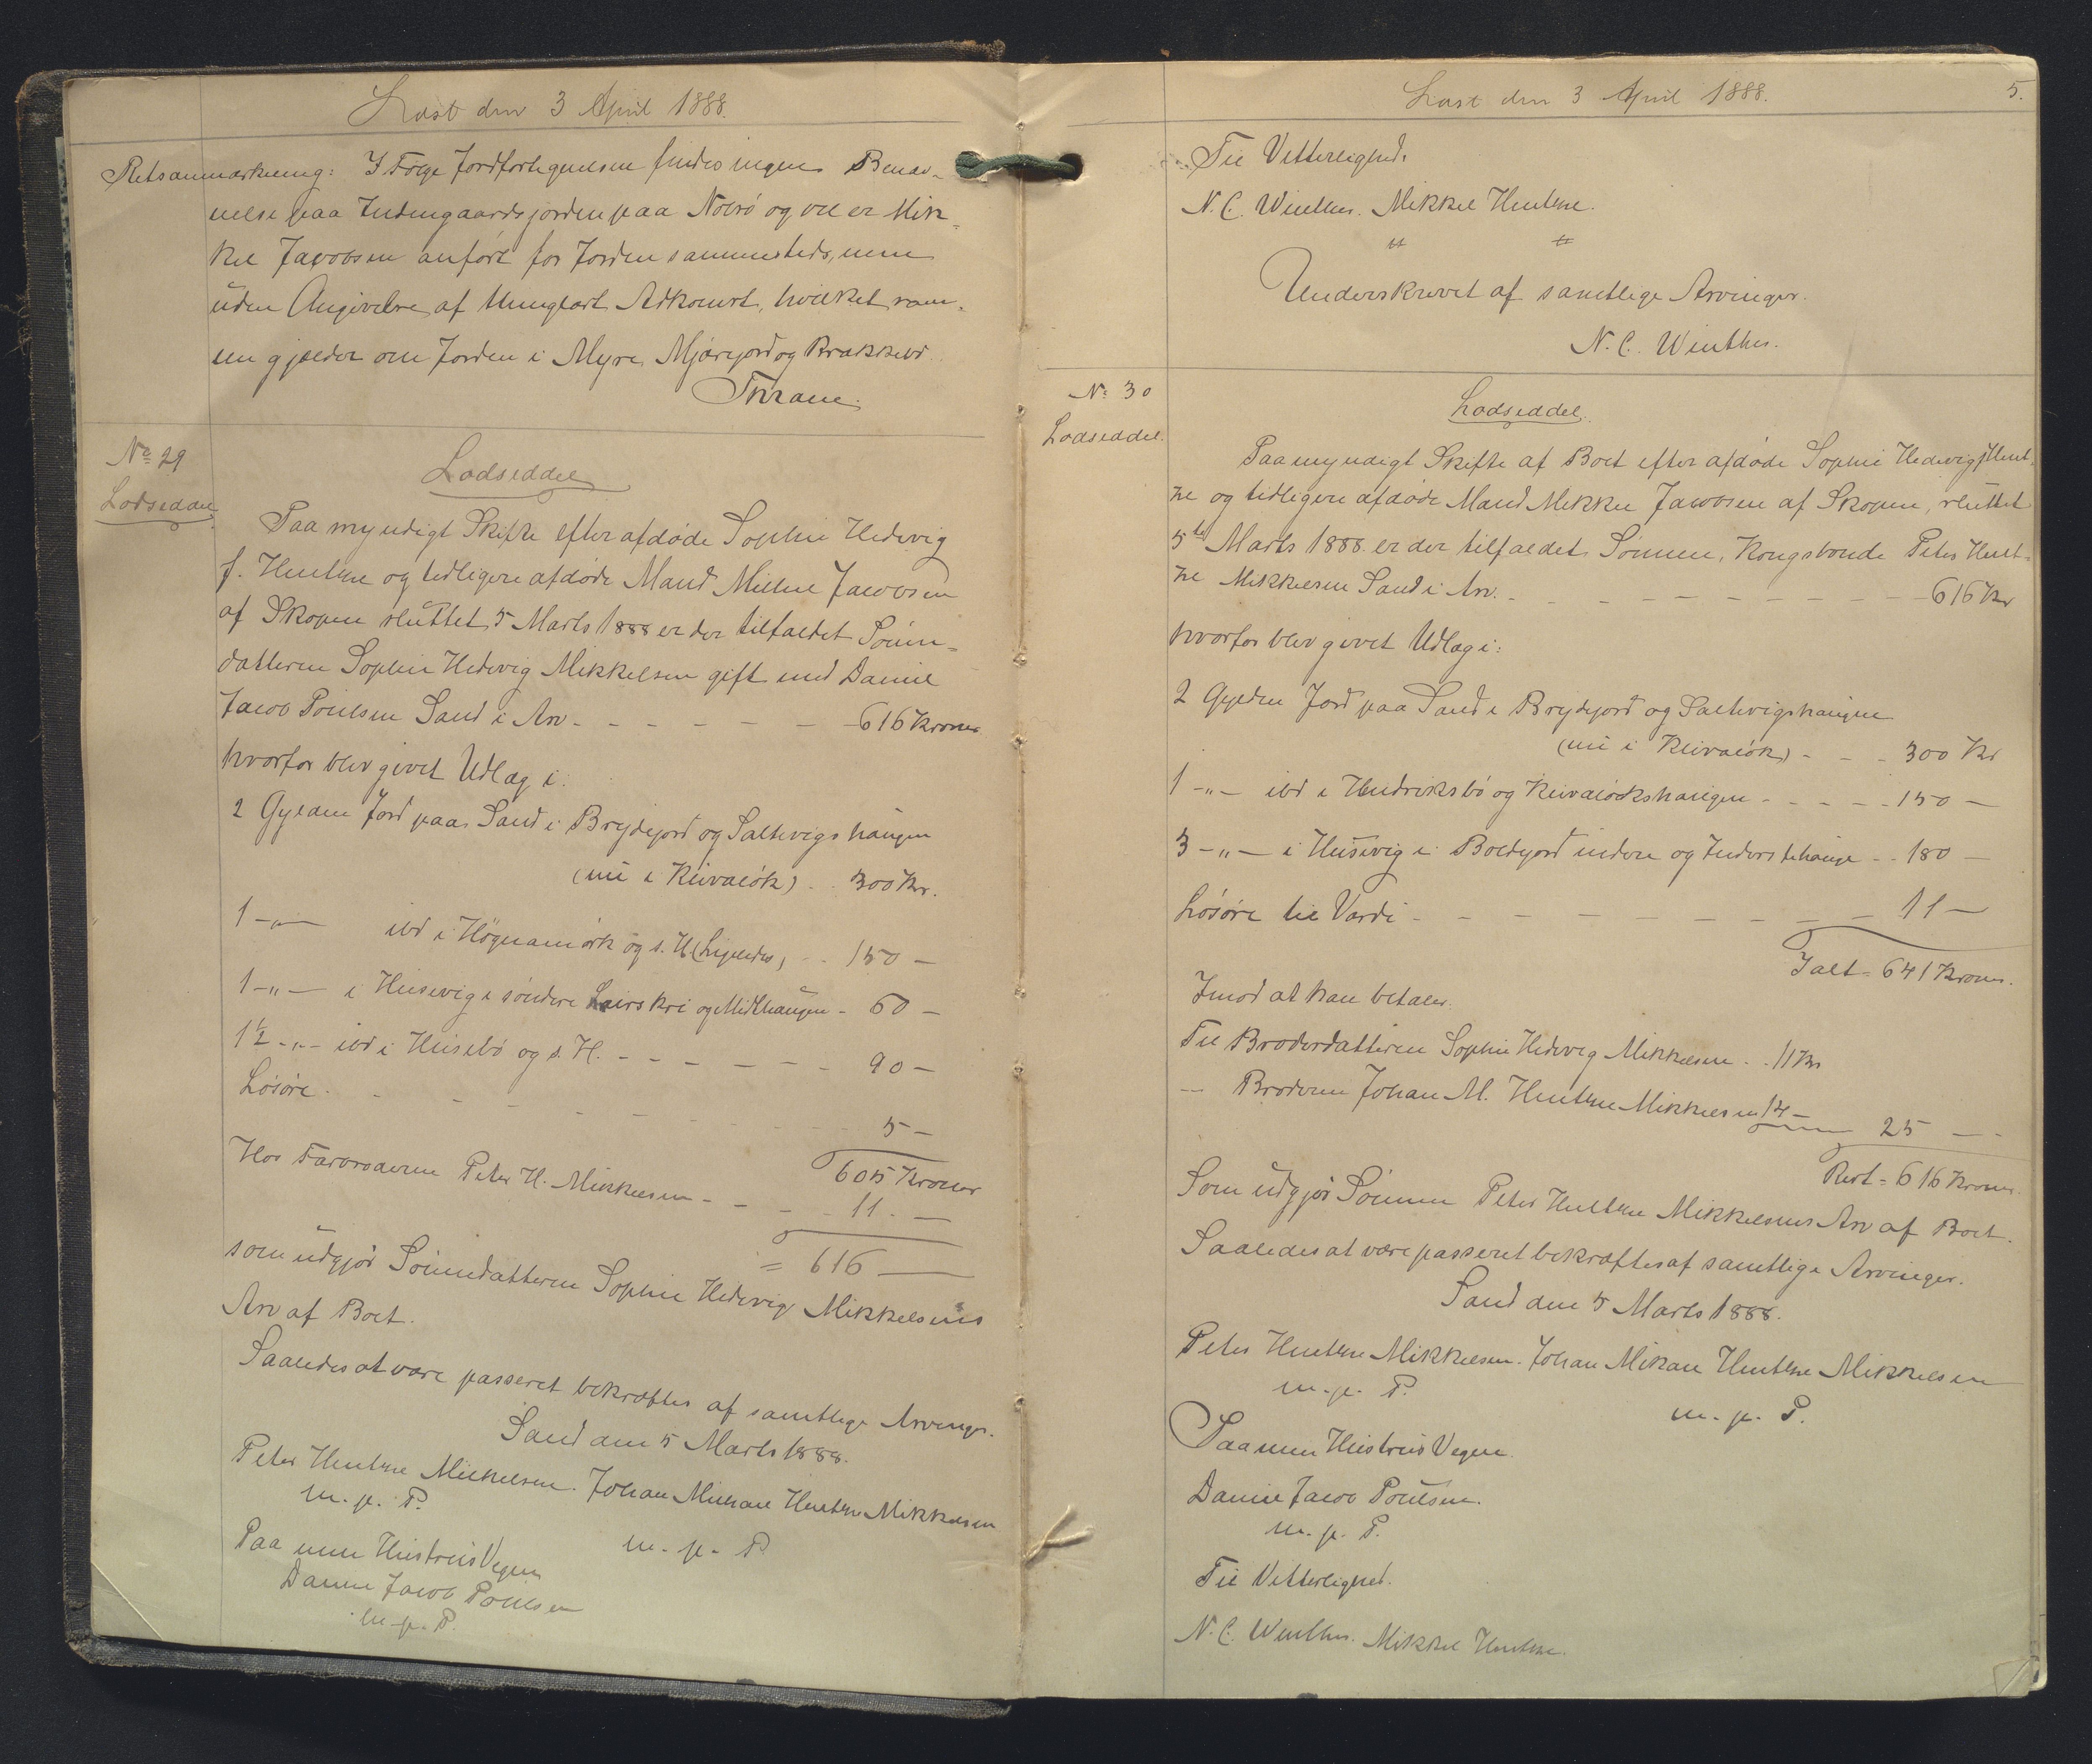 Læst den 3 April 1888.
Retsanmærkning: I Følge Jordfortegnelsen findes ingen Benæv-
nelse paa Indengaardsjorden paa Nolsö og vel er Mik-
kel Jacobsen anført for Jorden sammesteds, men
uden Angivelse af tinglæst Adkomst, hvilket sam-
me gjælder om Jorden i Myre, Mjørejord og Brækkebr.
No 29
Lodseddel
Lodseddel
Paa myndigt Skifte efter afdøde Sophie Hedevig
f. Hentze og tidligere afdøde Mand Mikkel Jacobsen
af Skopen sluttet 5 Marts 1888 er der tilfaldet Sønne-
datteren Sophie Hedevig Mikkelsen gift med Daniel
Jacob Poulsen Sand i Arv - - - - - - 616 Kroner
hvorfor blev givet Udlæg i:
2 Gylden Jord paa Sand i Brydejord og Saltvigshaugen
(nu i Kleivalök) - - 300 Kr.
1 -"- ibd i Høgnamørk og s. H. (Ligeledes) - - 150 -
1 -"- i Husevig i søndere Leirskri og Midthaugen - 60 -
1½ -"- ibd i Husebø og s. H. - - - - - - 90 -
Løsøre - - - - - - - 5 -
605 Kroner
Hos Farbroderen Peter H. Mikkelsen - - - - 11. -
= 616 -
som udgjør Sønnedatteren Sophie Hedevig Mikkelsens
Arv af Boet.
Saaledes at være passeret bekræftes af samtlige Arvinger.
Sand den 5 Marts 1888.
Peter Hentze Mikkelsen. Johan Michael Hentze Mikkelsen
m. p. P.
m. p. P.
Paa min Hustrus Vegne
Daniel Jacob Poulsen
m. p. P.
Læst den 3 April 1888.
5.
Til Vitterlighed:
N. C. Winther. Mikkel Hentze.
" "
Underskrevet af samtlige Arvinger.
N. C. Winther.
No 30
Lodseddel.
Lodseddel.
Paa myndigt Skifte af Boet efter afdøde Sophie Hedevig f Hent-
ze og tidligere afdøde Mand Mikkel Jacobsen af Skopen, sluttet
5te Marts 1888 er der tilfaldet Sønnen, Kongsbonde Peter Hent-
ze Mikkelsen Sand i Arv. - - - - - - - - - 616 Kr
hvorfor blev givet Udlæg i:
2 Gylden Jord paa Sand i Brydejord og Saltvigshaugen
(nu i Kleivalök) - - - 300 Kr
1 -"- ibd i Hendriksbö og Kleivalökshaugen - - - - - 150 -
3 -"- i Husevig i Boldejord indere og Inderstehauge - - 180 -
Løsøre til Værdi - - - - - - - - - 11 -
Ialt = 641 Kroner.
Imod at han betaler.
Til Broderdatteren Sophie Hedevig Mikkelsen - - 11 Kr
-- Broderen Johan M. Hentze Mikkelsen 14 -
25 - -
Rest = 616 Kroner.
Som udgjør Sønnen Peter Hentze Mikkelsens Arv af Boet.
Saaledes at være passeret bekræftes af samtlige Arvinger.
Sand den 5 Marts 1888.
Peter Hentze Mikkelsen. Johan Mikael Hentze Mikkelsen
m. p. P.
m. p. P.
Paa min Hustrus Vegne.
Daniel Jacob Poulsen.
m. p. P.
Til Vitterlighed.
N. C. Winther. Mikkel Hentze.